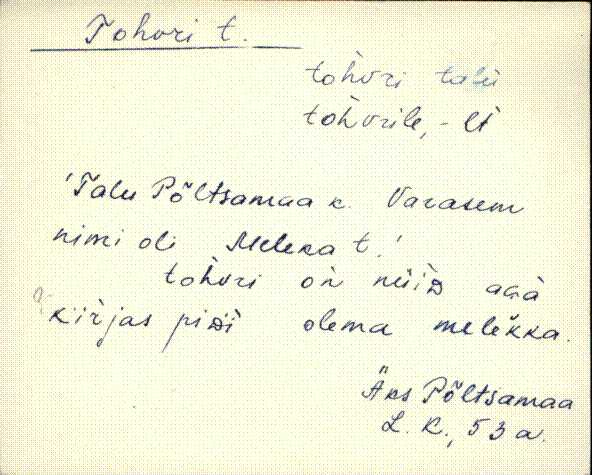 Tohvri t.
tòhvri talu
tòhvrile, - lt
'Talu Põltsamaa k. Varasem
nimi oli Meleka t.'
tòhvri òn nüiᴅ aGà
kìrjas piᴅì olema melèkka.
Äks Põltsamaa
L. K., 53 a.